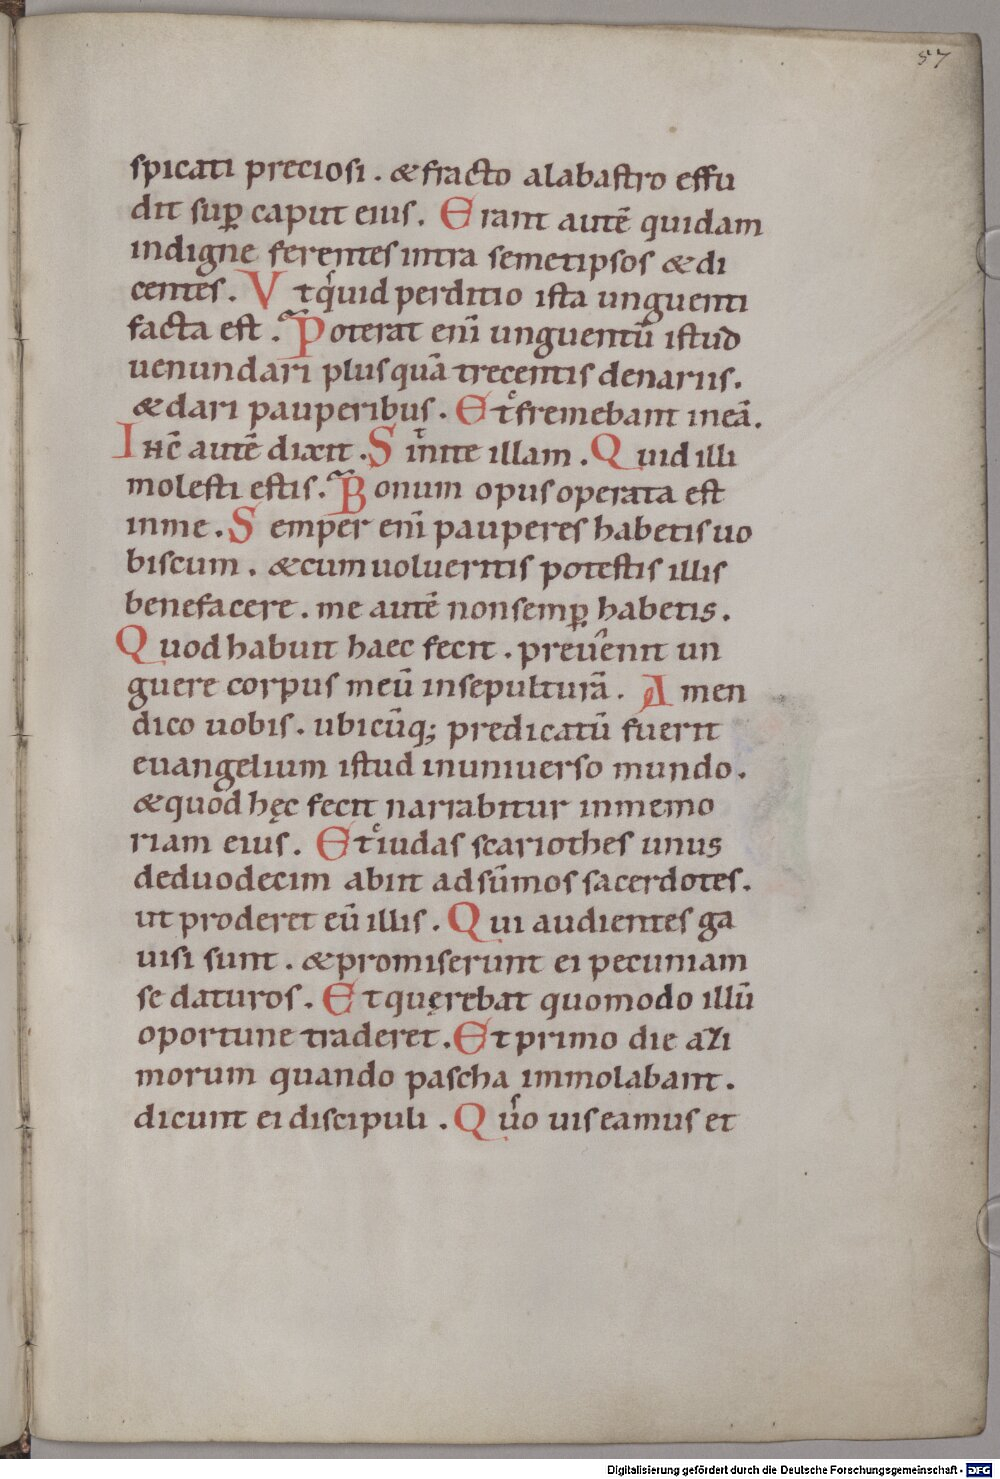 57
spicati preciosi . & fracto alabastro effu
dit sup̱ caput eius . Erant autē quidam
indigne ferentes intra semetipsos & di
centes . Vt quid perditio ista unguenti
facta est . Poterat eni̅ unguentū istud
uenundari plus quā trecentis denariis .
& dari pauperibus . Et fremebant in eā .
Ihc̄ autē dixit . Sinite illam . Quid illi
molesti estis . Bonum opus operata est
in me . Semper eni̅ pauperes habetis uo
biscum . & cum uolueritis potestis illis
benefacere . me autē non semp̱ habetis .
Quod habuit haec fecit . preuenit un
guere corpus meū in sepulturā . Amen
dico uobis . ubicūq; predicatū fuerit
euangelium istud in uniuerso mundo .
& quod hęc fecit narrabitur in memo
riam eius . Et iudas scariothes unus
de duodecim abiit ad sūmos sacerdotes .
ut proderet eū illis . Qui audientes ga
uisi sunt . & promiserunt ei pecuniam
se daturos . Et quęrebat quomodo illū
oportune traderet . Et primo die azi
morum quando pascha immolabant .
dicunt ei discipuli . Quo uis eamus et
Digitalisierung gefördert durch die Deutsche Forschungsgemeinschaft - DFG